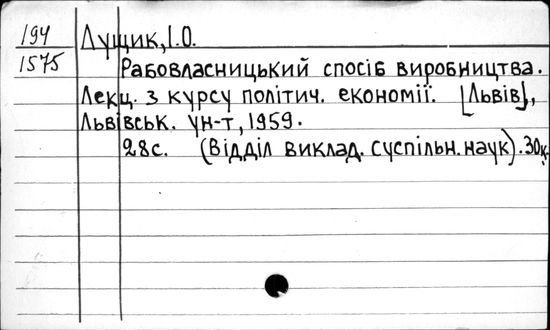 194 Лущик, І.О.
1575 Рабовласницький спосіб виробництва.
Лекц. з курсу політич. економії. [Львів],
Львівськ. ун-т, 1959.
28с. (Відділ виклад. суспільн. наук). 30к.